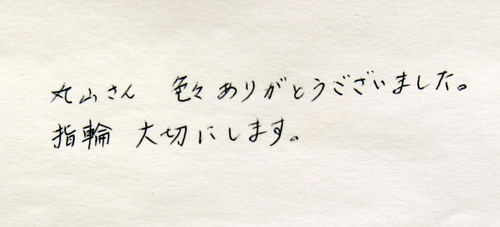 丸山さん 色々ありがとうございました。
指輪 大切にします。